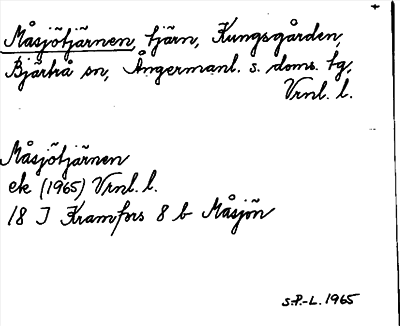 Måsjötjärnen, tjärn, Kungsgården,
Bjärtrå sn, Ångermanl. s. doms. tg,
Vrnl. l.
Måsjötjärnen
ek (1965) Vrnl. l.
18 I Kramfors 8 b Måsjön
S.P.-L. 1965